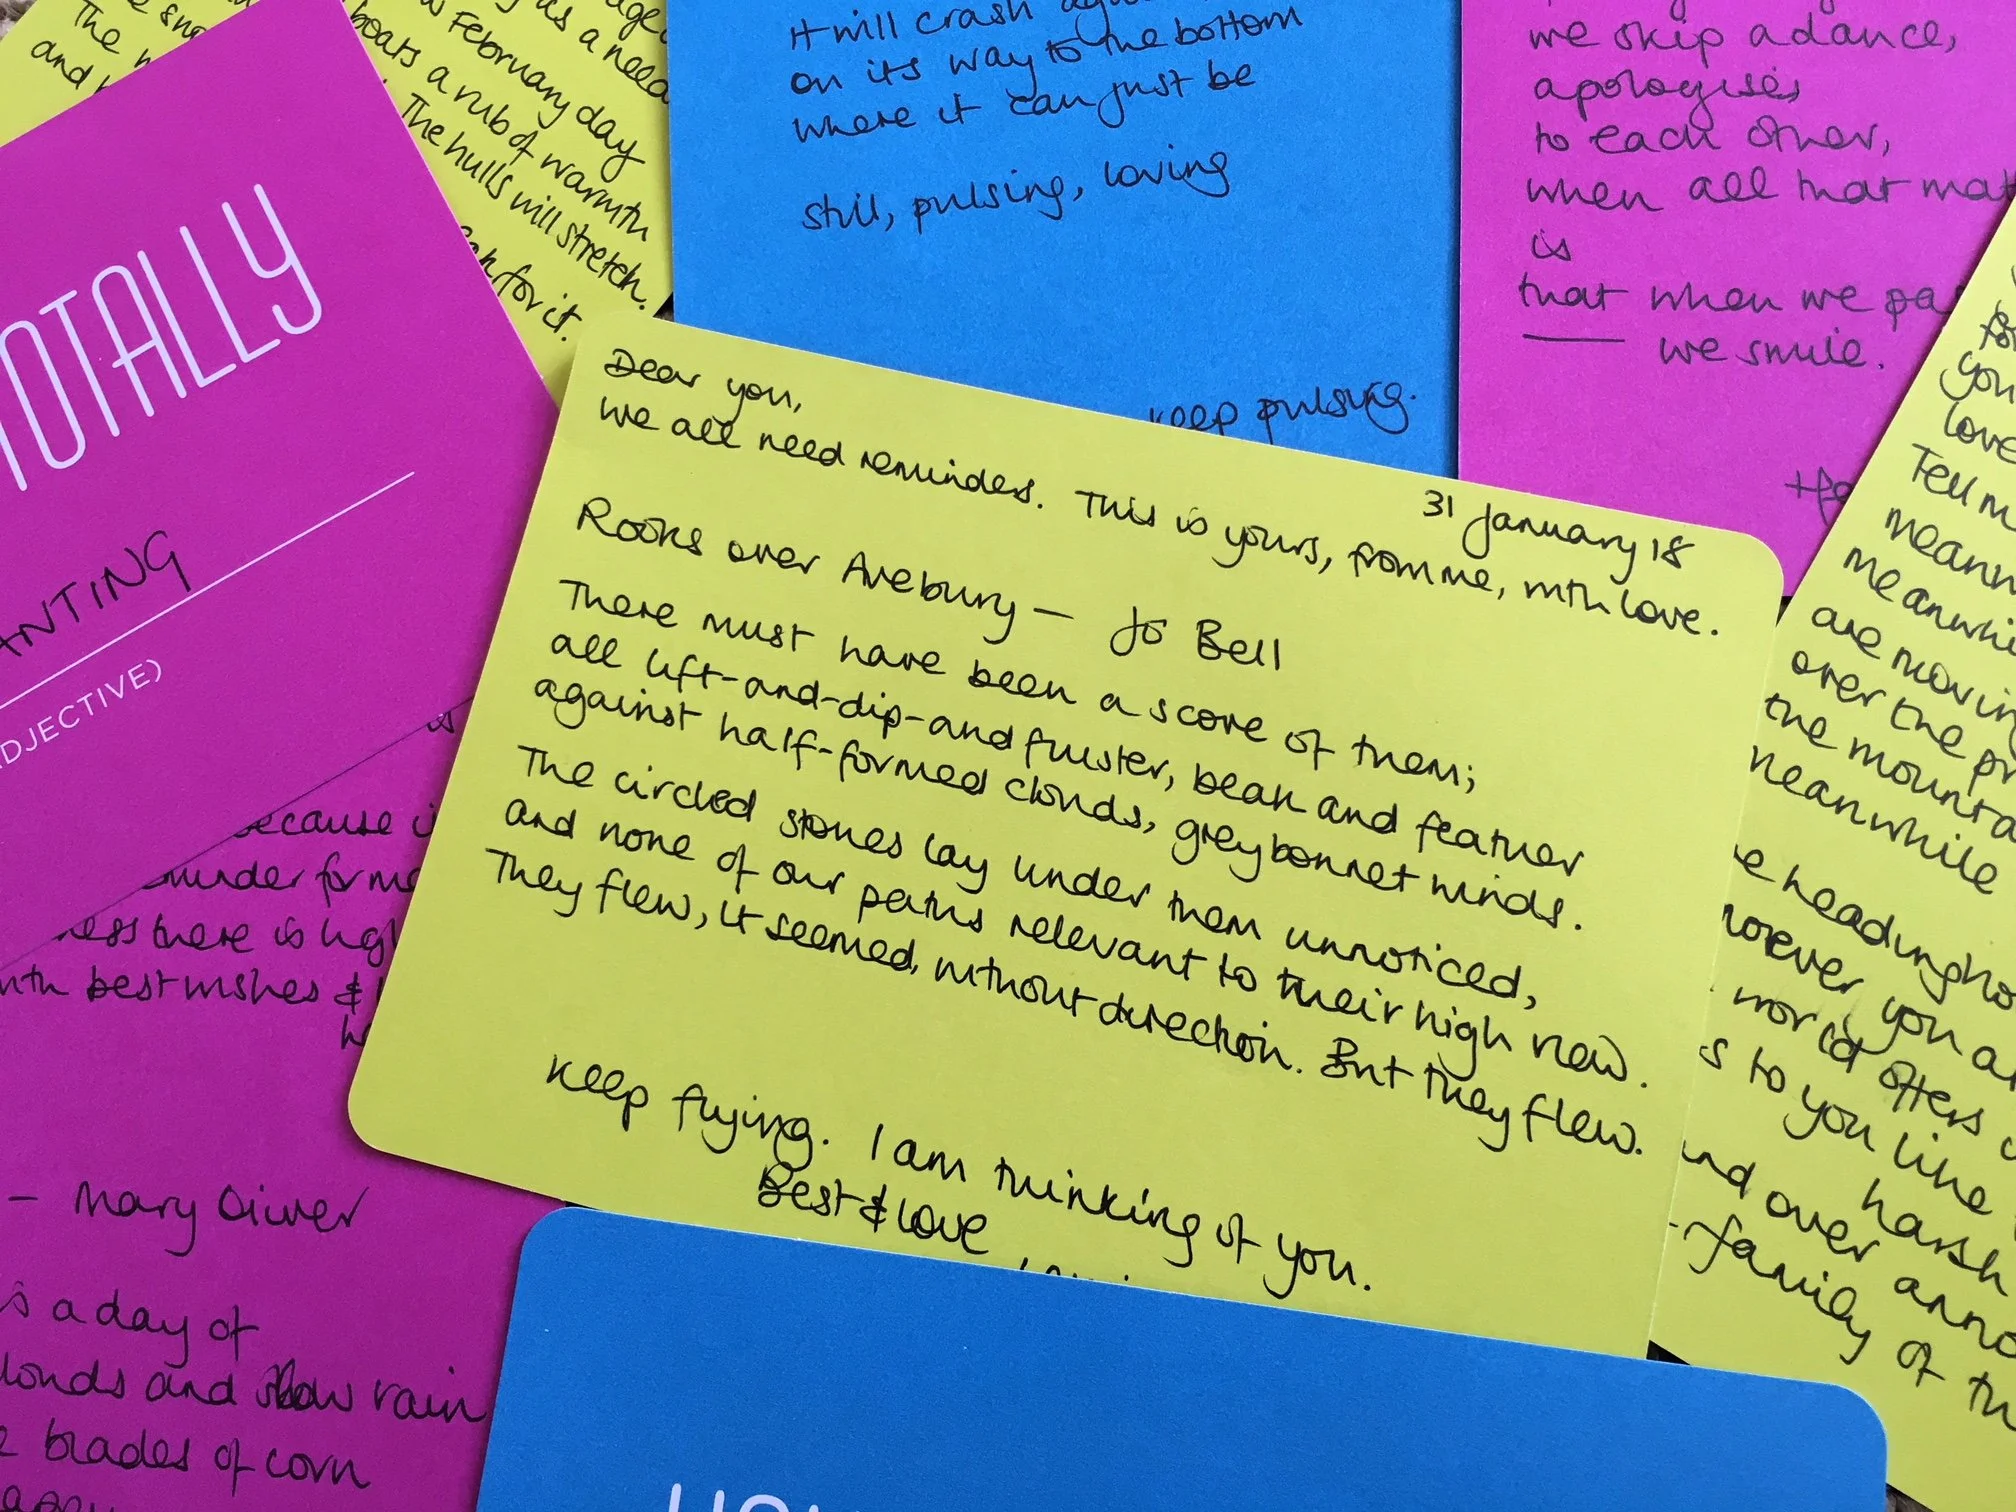 and
boats a rub of warmth
February day
as a need
The hulls will stretch.
for it.
it will crash
on its way to the bottom
where it can just be
still, pulsing, loving
keep pulsing.
we skip a dance,
apologises
to each other,
when all that
is
that when we
— we smile.
TOTALLY
ANTING
ADJECTIVE)
because
ness there is
with best wishes &
— Mary Oliver
is a day of
clouds and slow rain
blades of corn
31 January 18
Dear you,
We all need reminders. This is yours, from me, with love.
Rooks over Avebury — Jo Bell
There must have been a score of them;
all lift-and-dip-and fluster, beak and feather
against half-formed clouds, greybonnet winds.
The circled stones lay under them unnoticed,
and none of our paths relevant to their high view.
They flew, it seemed, without direction. But they flew.
Keep flying. I am thinking of you.
Best & love
you
love
Tell
meanwhile
are moving
over the
the
meanwhile
heading
you
world offers
to you like
harsh
and over
family of